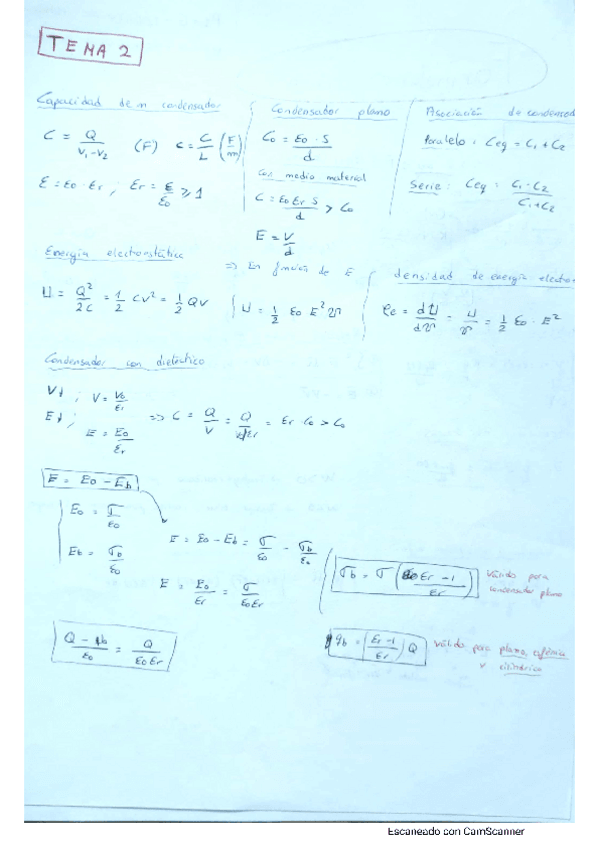 TEMA 2
Capacidad de un condensador
C = Q / V1-V2 (F) c = C/L (F/m)
E = E0 · Er ; Er = E/E0 ≥ 1
Condensador plano
C0 = E0 · S / d
Con medio material
C = E0 Er S / d > C0
E = V/d
Asociación de condensad
Paralelo : Ceq = C1 + C2
Serie : Ceq = C1 · C2 / C1 + C2
Energía electrostática
U = Q² / 2C = 1/2 CV² = 1/2 QV
=> En función de E
U = 1/2 E0 E² V
densidad de energía electro
ρe = dU/dV = U/V = 1/2 E0 · E²
Condensador con dieléctrico
V↓ ; V = V0/Er
E↓ ; E = E0/Er
=> C = Q/V = Q / V0/Er = Er C0 > C0
E = E0 - Eb
E0 = σ/E0
Eb = σb/E0
E = E0 - Eb = σ/E0 - σb/E0
E = E0/Er = σ/E0Er
σb = σ (Er - 1 / Er)
Válido para
condensador plano
Q - qb / E0 = Q / E0Er
qb = (Er-1 / Er) Q
Válido para plano, esférico
y cilíndrico
Escaneado con CamScanner